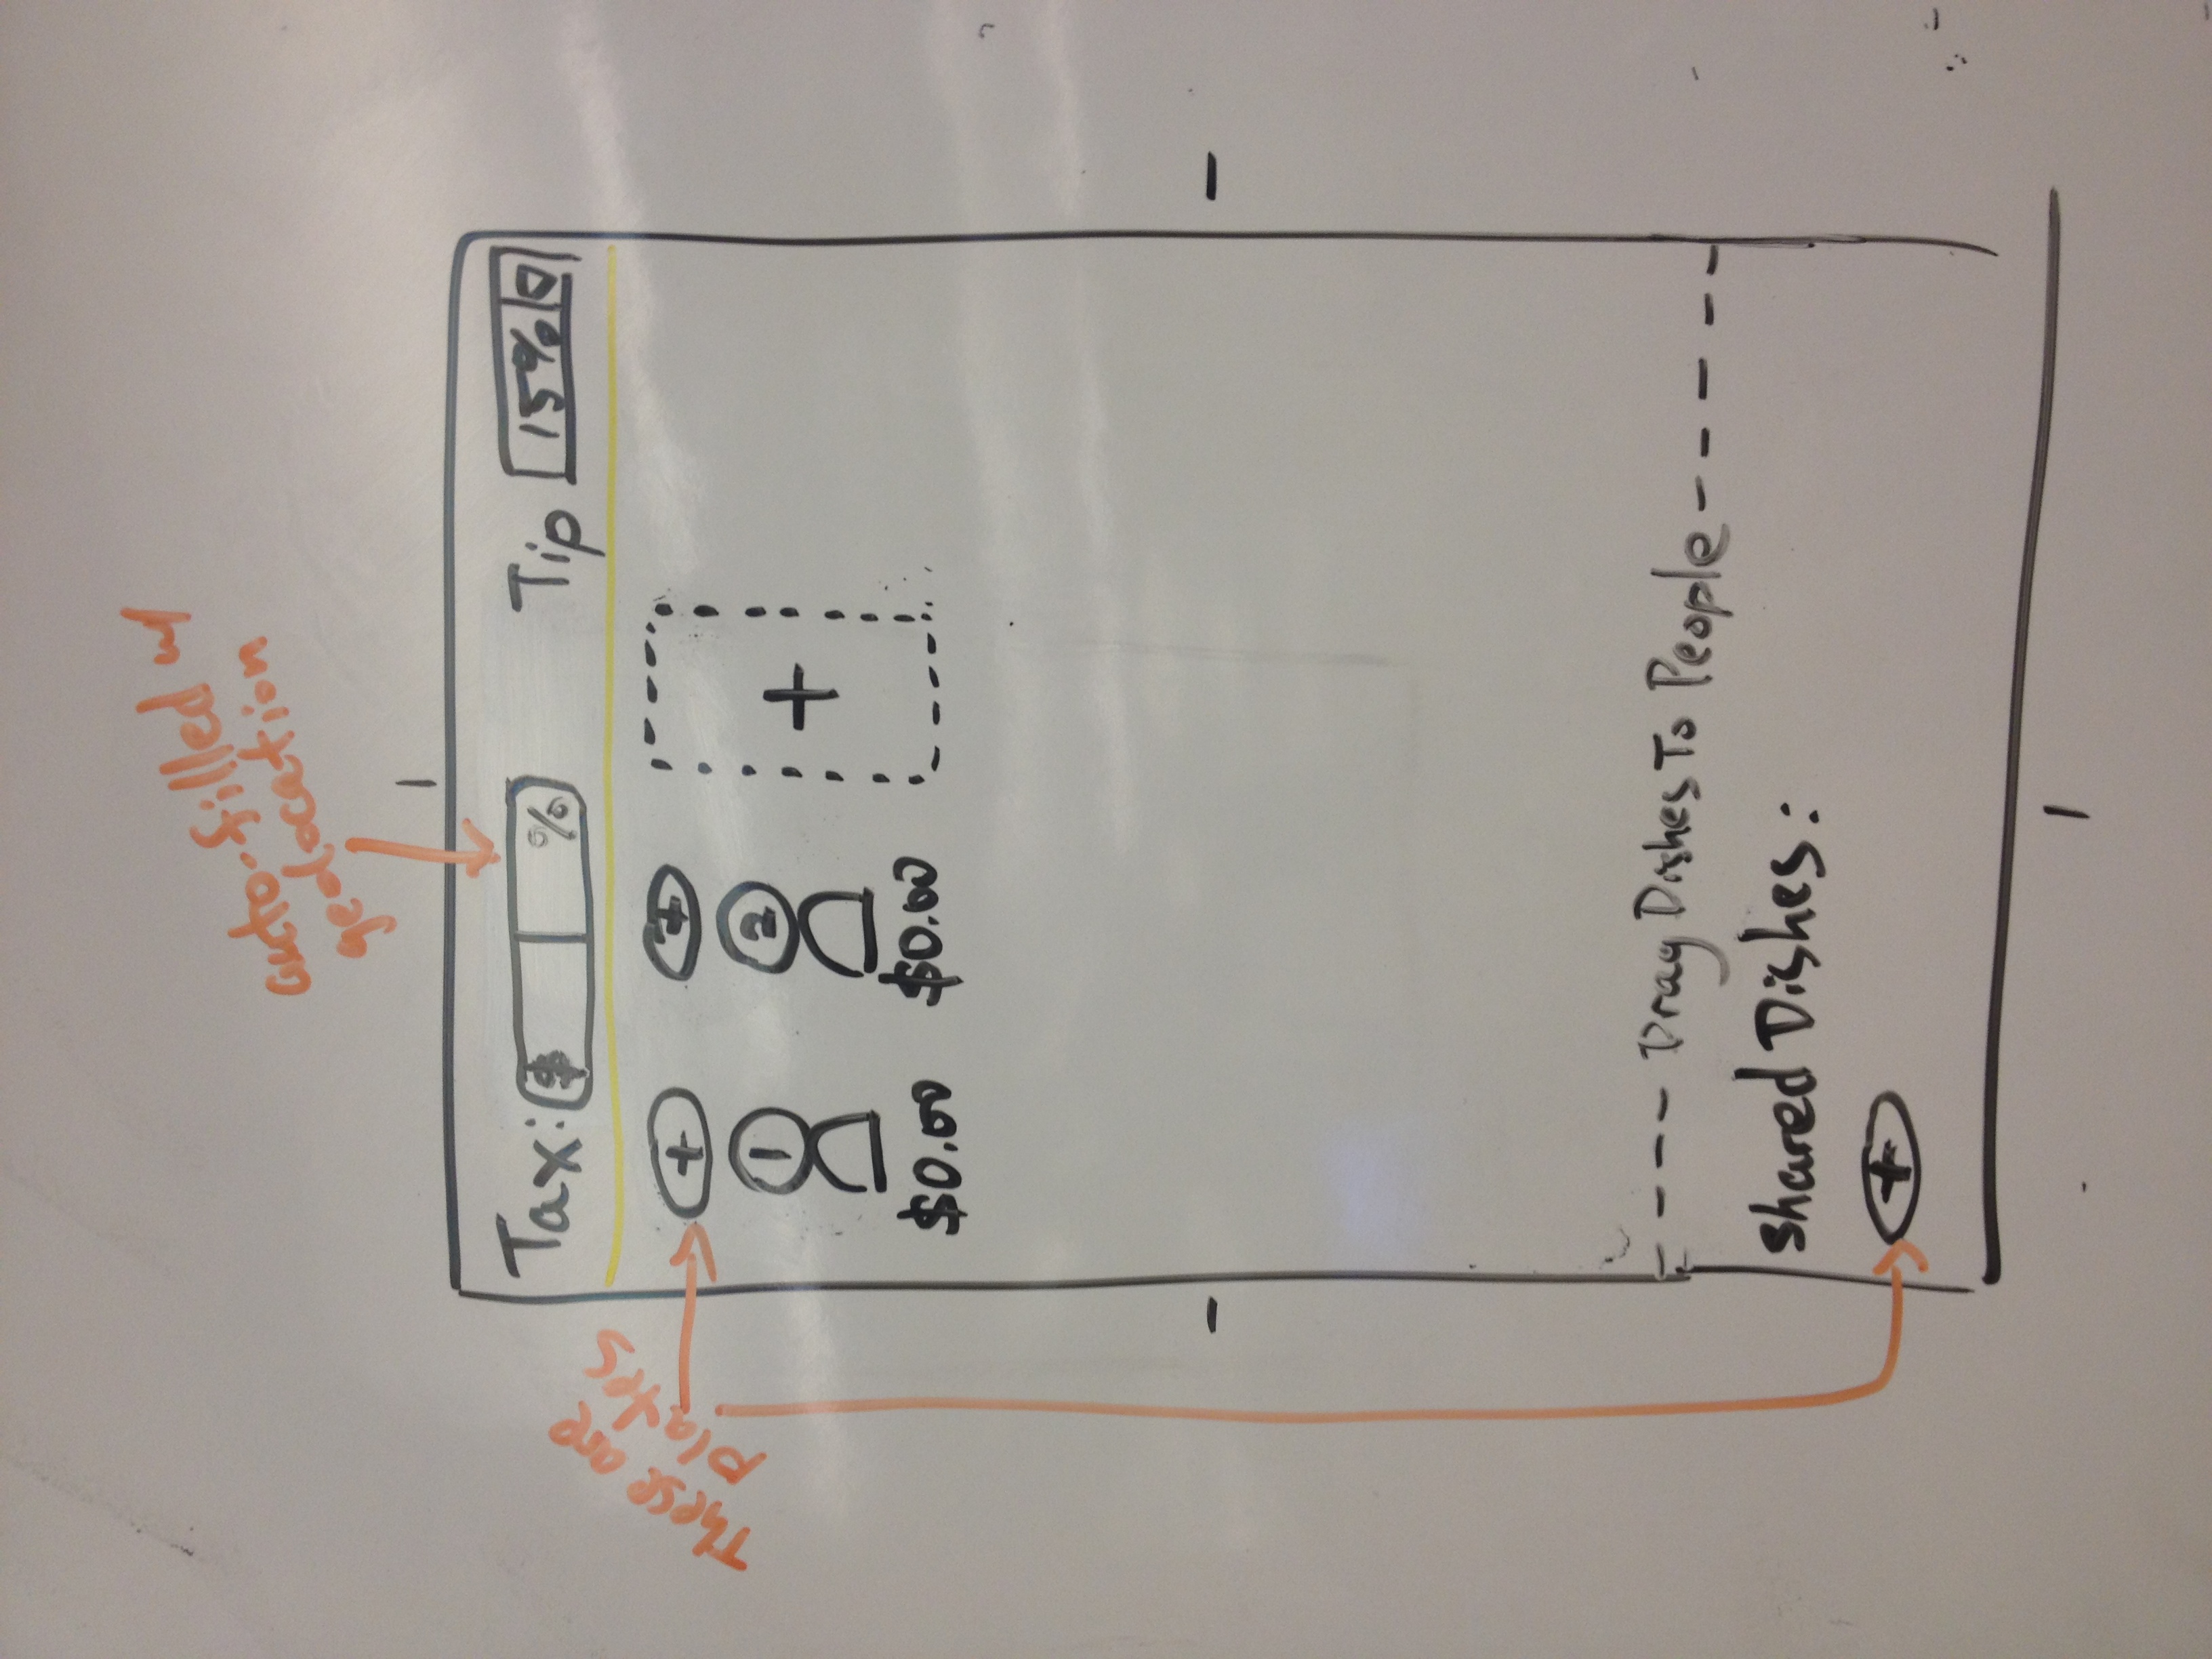 auto-filled w/
geolocation
These are
plates
Tax: $ %
Tip 15%
+ +
1 2 +
$0.00 $0.00
Drag Dishes To People
Shared Dishes:
+